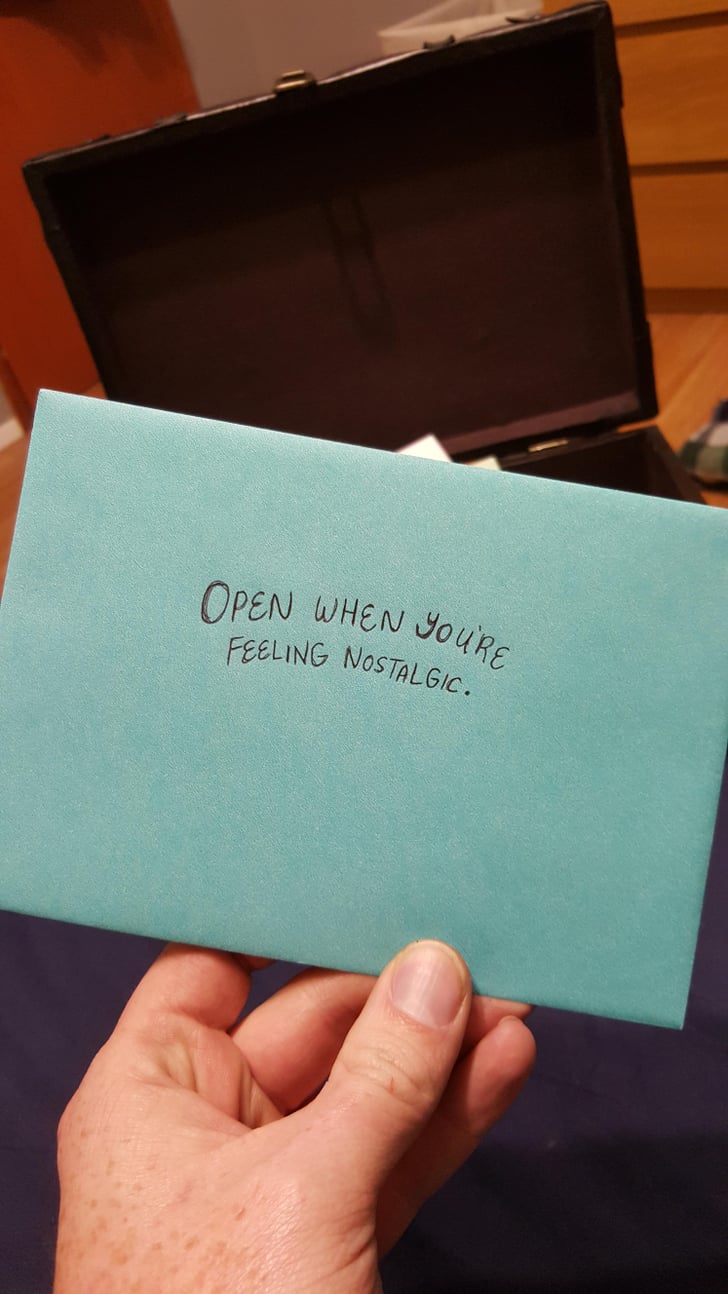 OPEN WHEN YOU'RE
FEELING NOSTALGIC.